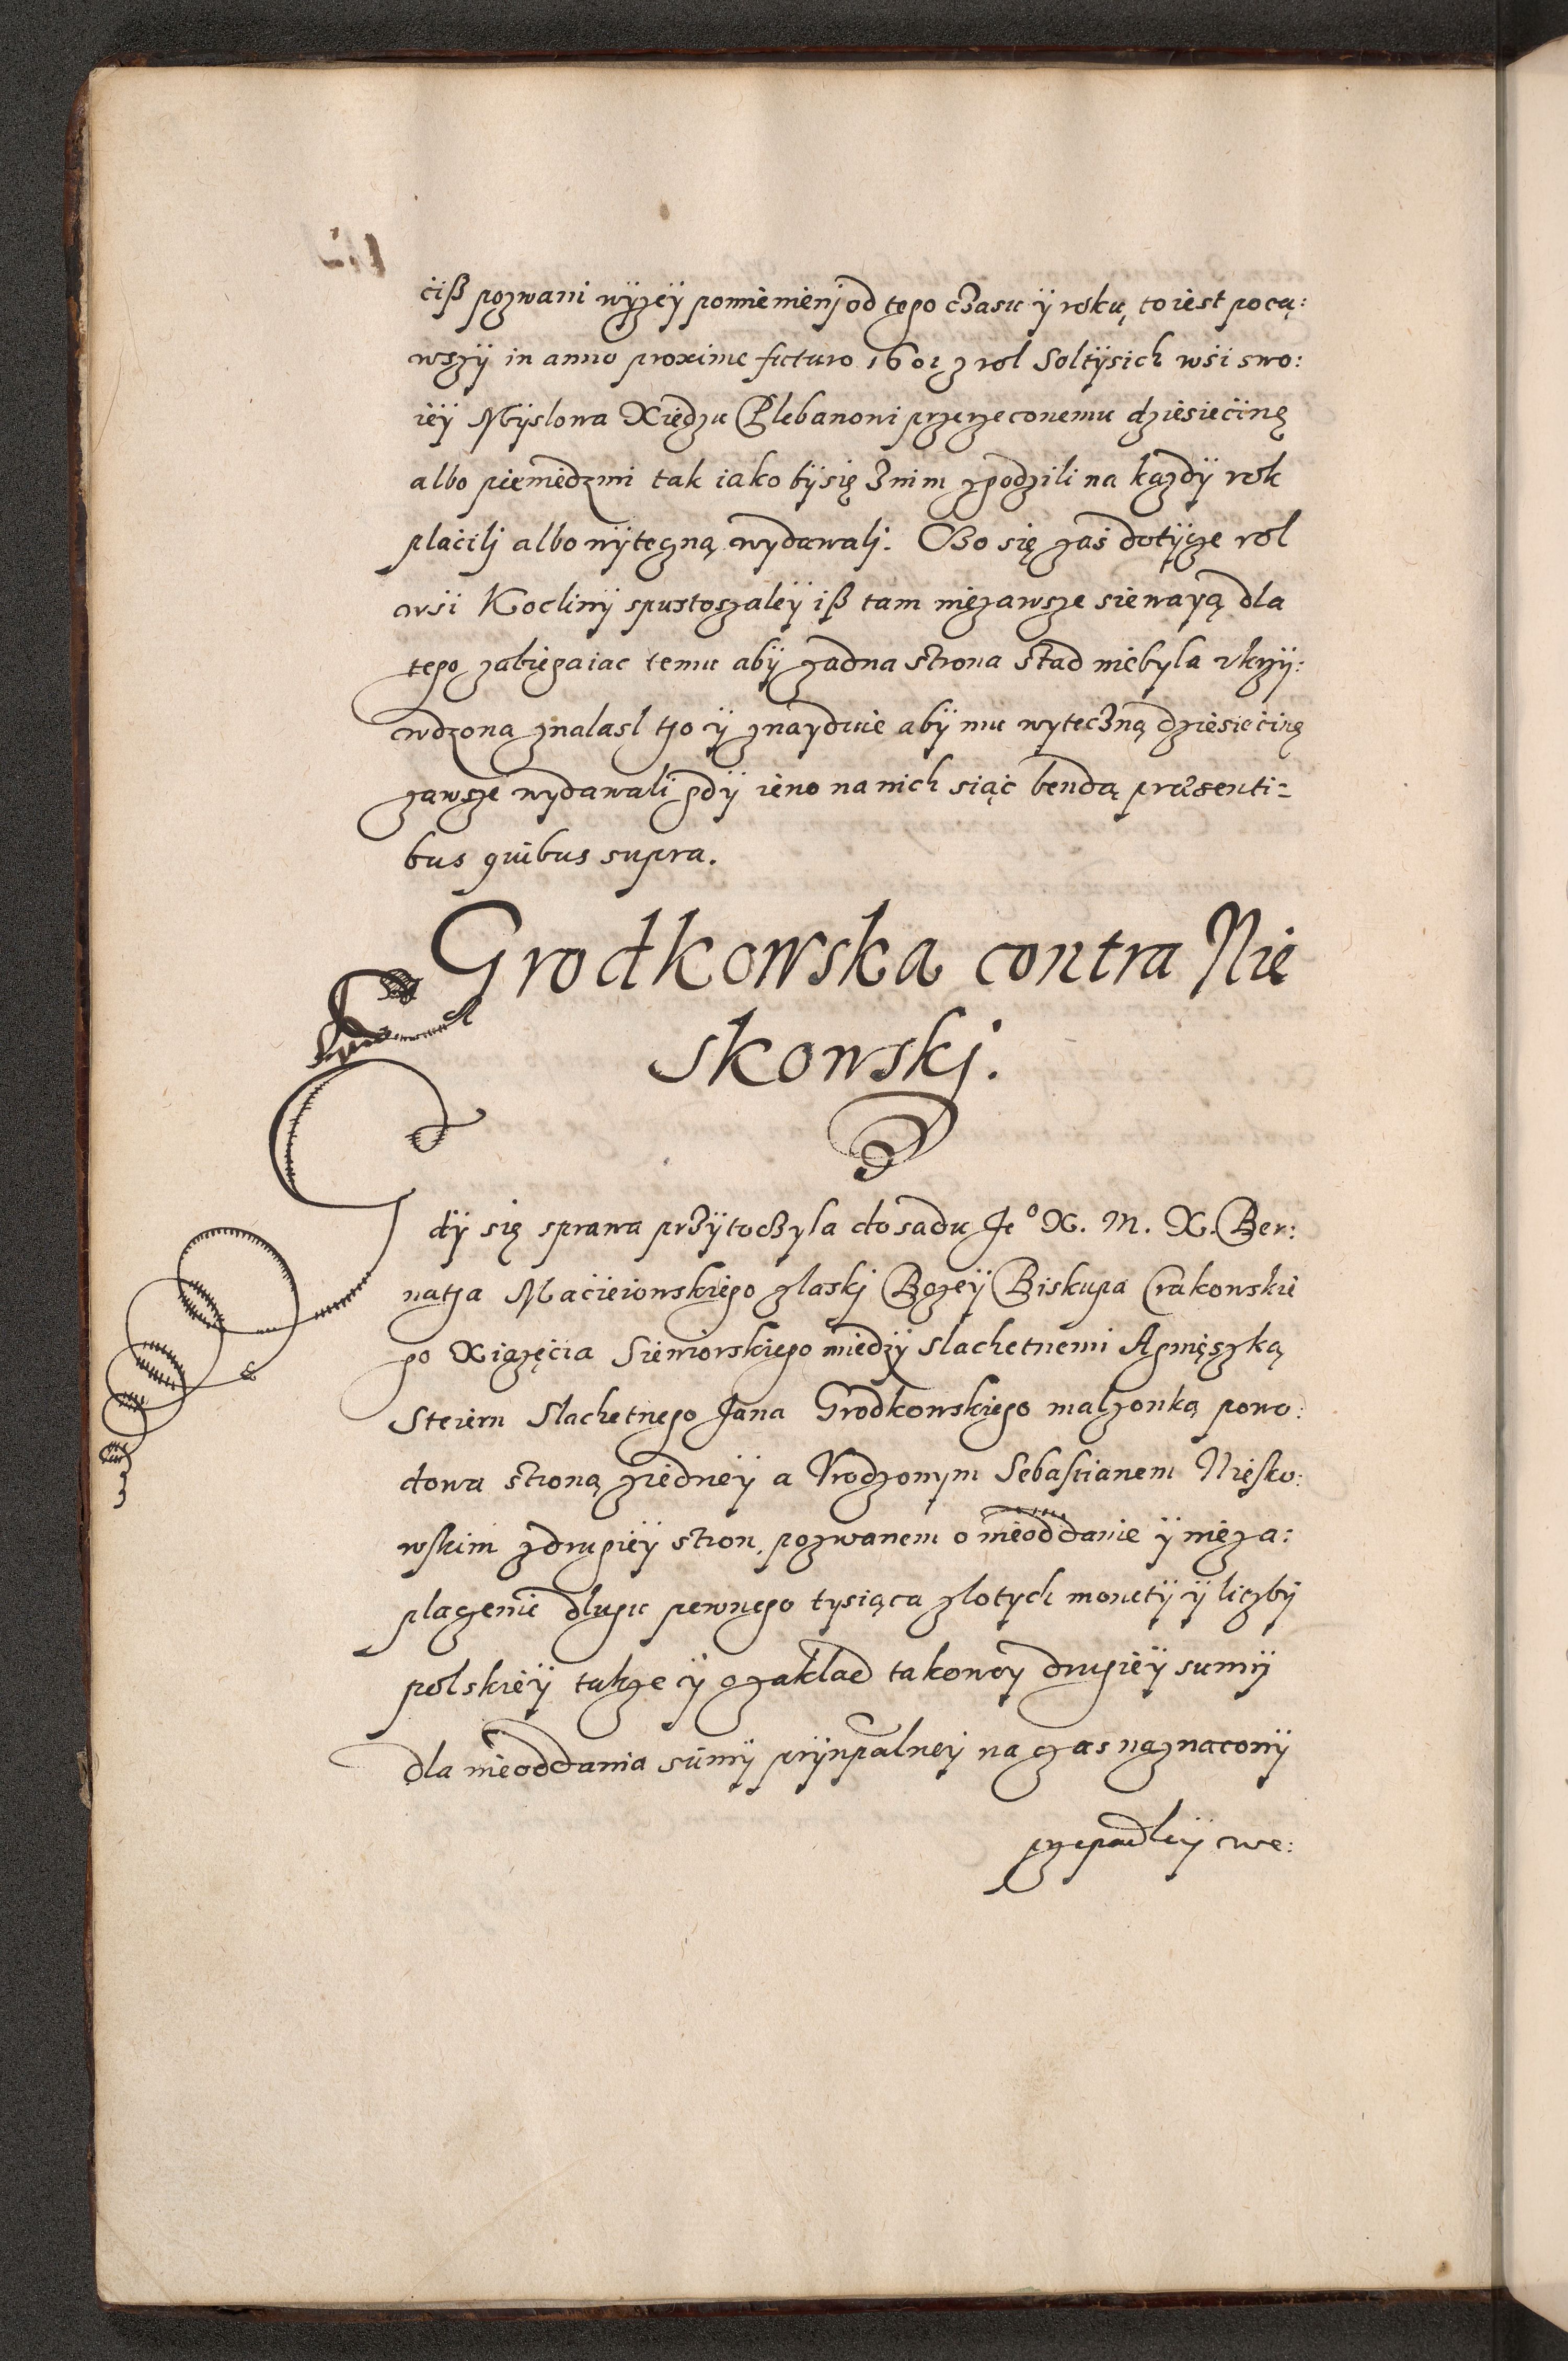 ciß pozwani wÿzeÿ pomienienj od tego cżasu ÿ roku, to iest pocą:
wszÿ in anno proxime futuro 1601 z rol Soltÿsich wsi swo:
ieÿ Mÿslowa Xiędzu Plebanowi przerzeconemu dziesiecinę
albo pieniedzmi tak iako bÿ się z nim zgodzili na kazdÿ rok
placilj albo wÿteczną wydawalj. Czo się zaś dotÿcze rol
wsi Koclinÿ spustoszaleÿ iß tam niezawsze siewayą dla
tego zabiegaiac temu abÿ zadna strona stad niebyla vkrzÿ:
wdzona znalasl tzo ÿ znayduie abÿ mu wyteczną dziesiecinę
zawsze wydawali gdÿ ieno na nich siąc bendą præsenti=
bus quibus supra.
Grodkowska contra Nie
skowskj.
Gdÿ się sprawa przÿtoczyla do sadu Je° X. M. X. Ber:
natza Macieiowskiego z laskj Bozeÿ Biskupa Crakowskie
go Xiązęcia Siewiorskiego miedzÿ slachetnemi Agnięszką
Steiern Slachetnego Jana Grodkowskiego malzonką powo:
dowa stroną z iedneÿ a Vrodzonym Sebastianem Niesko:
wskim z drugieÿ stron. pozwanem o nieoddanie ÿ nieza:
plazenie dlugu pewnego tysiąca zlotych monetÿ ÿ liczbÿ
polskieÿ takze ÿ o zaklad takoweÿ drugieÿ sumÿ
dla nieoddania sumÿ prÿnpalneÿ na czas naznaconÿ
przepadleÿ we: